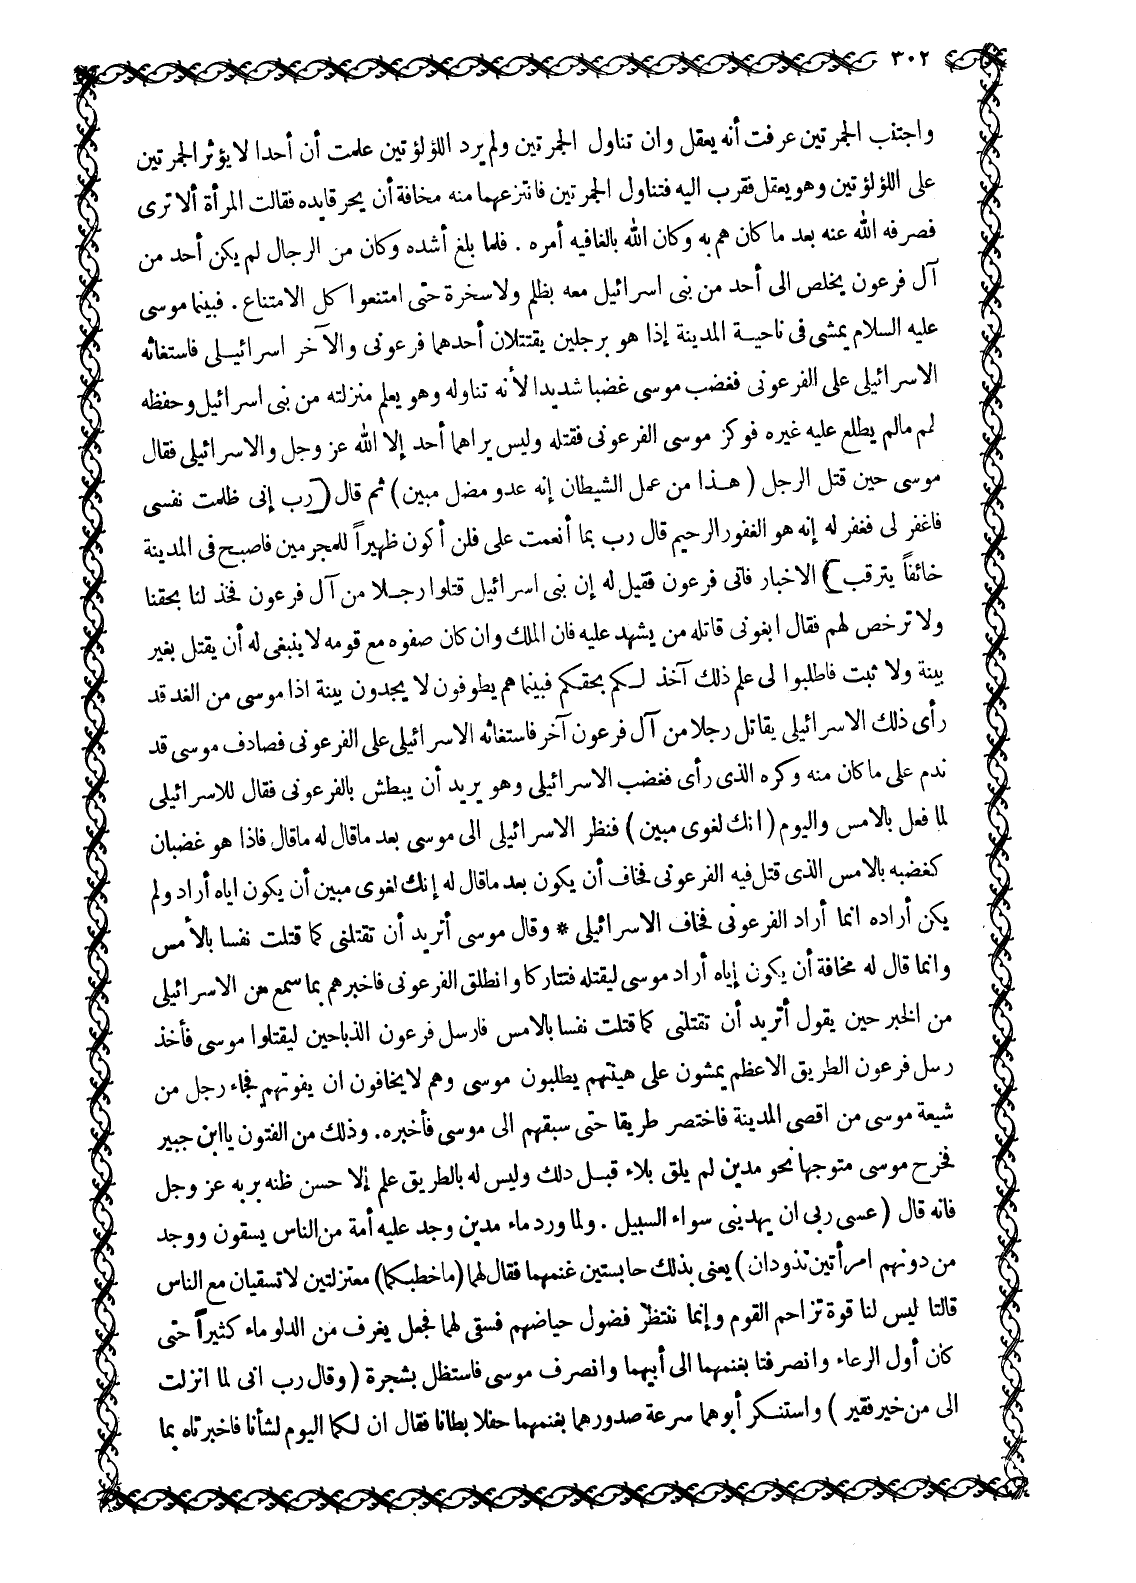 ٣٠٢
واجتنب الجمرتين عرفت أنه يعقل وان تناول الجمرتين ولم يرد اللؤلؤتين علمت أن أحدا لا يؤثر الجمرتين
على اللؤلؤتين وهو يعقل فقرب اليه فتناول الجمرتين فانتزعهما منه مخافة أن يحرقا يده فقالت المرأة ألا ترى
فصرفه الله عنه بعد ما كان هم به وكان الله بالغا فيه أمره . فلما بلغ أشده وكان من الرجال لم يكن أحد من
آل فرعون يخلص الى أحد من بنى اسرائيل معه بظلم ولا سخرة حتى امتنعوا كل الامتناع . فبينما موسى
عليه السلام يمشى فى ناحية المدينة إذا هو برجلين يقتتلان أحدهما فرعونى والآخر اسرائيلى فاستغاثه
الاسرائيلى على الفرعونى فغضب موسى غضبا شديدا لأنه تناوله وهو يعلم منزلته من بنى اسرائيل وحفظه
لهم مالم يطلع عليه غيره فوكز موسى الفرعونى فقتله وليس يراهما أحد إلا الله عز وجل والاسرائيلى فقال
موسى حين قتل الرجل ( هذا من عمل الشيطان إنه عدو مضل مبين ) ثم قال ( رب إنى ظلمت نفسى
فاغفر لى فغفر له إنه هو الغفور الرحيم قال رب بما أنعمت على فلن أكون ظهيراً للمجرمين فاصبح فى المدينة
خائفاً يترقب ) الاخبار فاتى فرعون فقيل له إن بنى اسرائيل قتلوا رجلا من آل فرعون فخذ لنا بحقنا
ولا ترخص لهم فقال ابغونى قاتله من يشهد عليه فان الملك وان كان صفوه مع قومه لا ينبغى له أن يقتل بغير
بينة ولا ثبت فاطلبوا لى علم ذلك آخذ لكم بحقكم فبينما هم يطوفون لا يجدون بينة اذا موسى من الغد قد
رأى ذلك الاسرائيلى يقاتل رجلا من آل فرعون آخر فاستغاثه الاسرائيلى على الفرعونى فصادف موسى قد
ندم على ما كان منه وكره الذى رأى فغضب الاسرائيلى وهو يريد أن يبطش بالفرعونى فقال للاسرائيلى
لما فعل بالامس واليوم ( انك لغوى مبين ) فنظر الاسرائيلى الى موسى بعد ماقال له ماقال فاذا هو غضبان
كغضبه بالامس الذى قتل فيه الفرعونى فخاف أن يكون بعد ماقال له إنك لغوى مبين أن يكون اياه أراد ولم
يكن أراده انما أراد الفرعونى فخاف الاسرائيلى * وقال موسى أتريد أن تقتلنى كما قتلت نفسا بالأمس
وانما قال له مخافة أن يكون إياه أراد موسى ليقتله فتتاركا وانطلق الفرعونى فاخبرهم بما سمع من الاسرائيلى
من الخبر حين يقول أتريد أن تقتلنى كما قتلت نفسا بالامس فارسل فرعون الذباحين ليقتلوا موسى فأخذ
رسل فرعون الطريق الاعظم يمشون على هينتهم يطلبون موسى وهم لا يخافون ان يفوتهم فجاء رجل من
شيعة موسى من اقصى المدينة فاختصر طريقا حتى سبقهم الى موسى فأخبره. وذلك من الفتون يا ابن جبير
فخرج موسى متوجها نحو مدين لم يلق بلاء قبل دلك وليس له بالطريق علم إلا حسن ظنه بربه عز وجل
فانه قال ( عسى ربى ان يهدينى سواء السبيل . ولما ورد ماء مدين وجد عليه أمة من الناس يسقون ووجد
من دونهم امرأتين تذودان ) يعنى بذلك حابستين غنمهما فقال لهما (ماخطبكما) معتزلتين لا تسقيان مع الناس
قالتا ليس لنا قوة تزاحم القوم وإنما ننتظر فضول حياضهم فسقى لهما فجعل يغرف من الدلو ماء كثيراً حتى
كان أول الرعاء وانصرفتا بغنمهما الى أبيهما وانصرف موسى فاستظل بشجرة ( وقال رب انى لما انزلت
الى من خير فقير ) واستنكر أبوهما سرعة صدورهما بغنمهما حفلا بطانا فقال ان لكما اليوم لشأنا فاخبرتاه بما